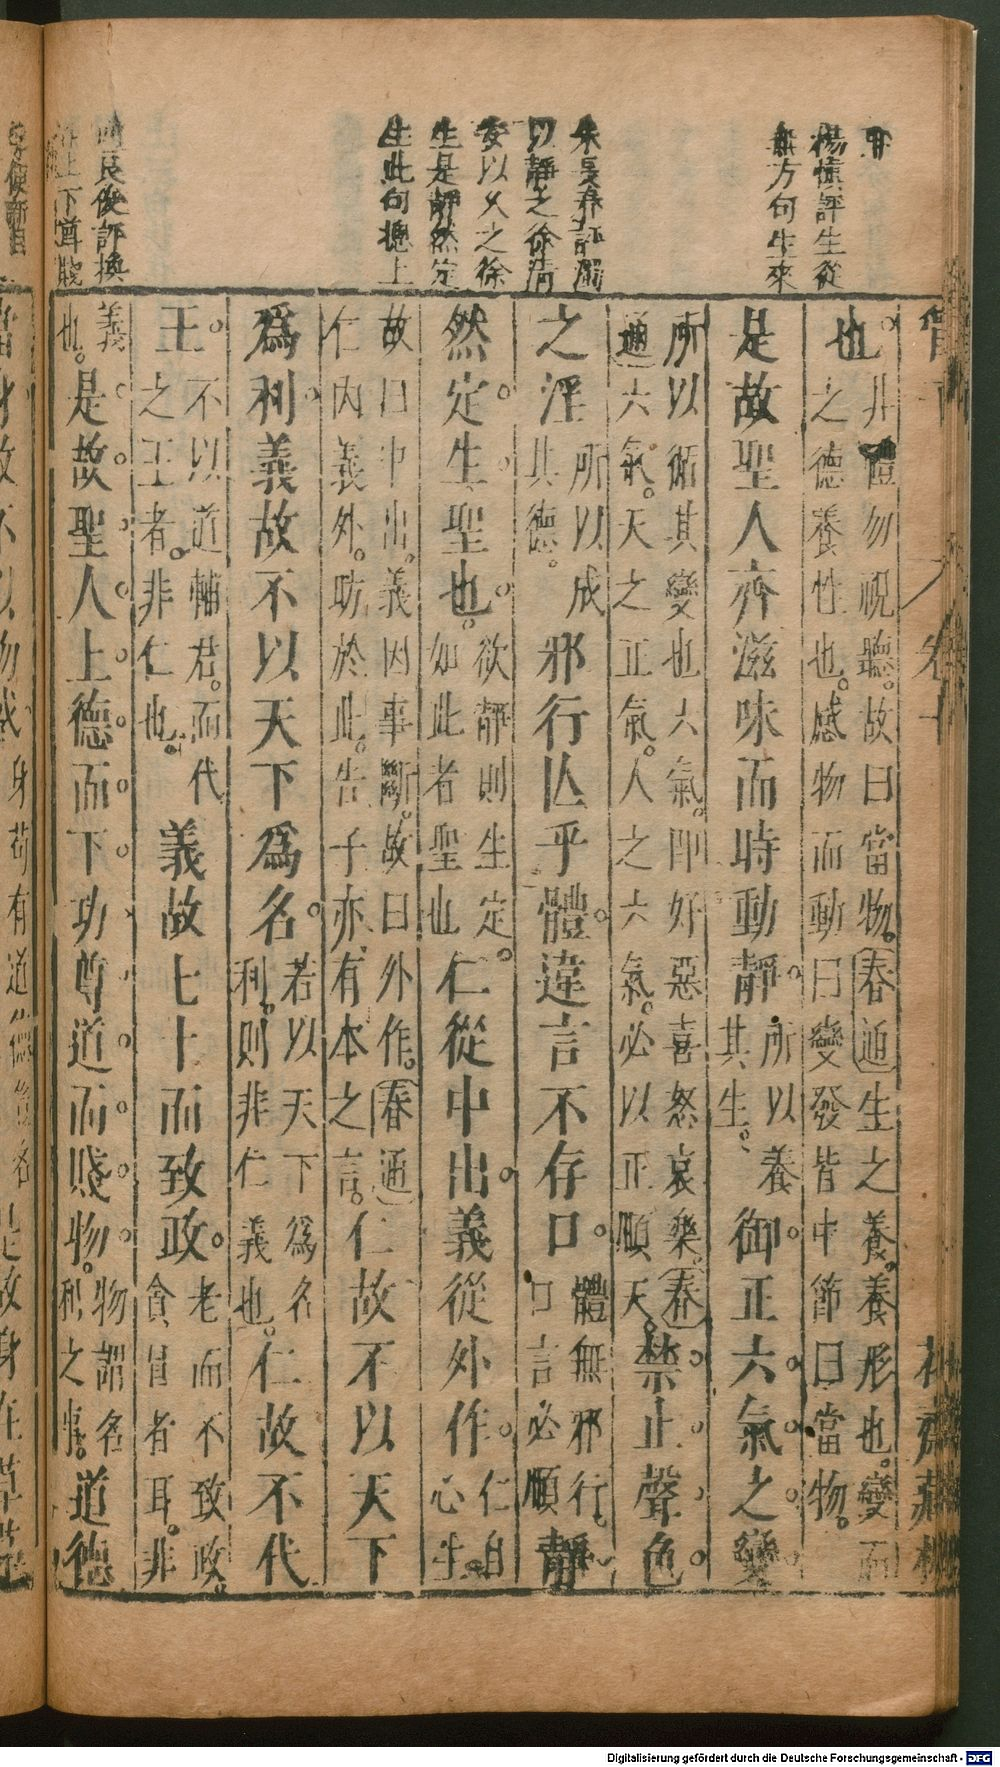 冊
楊慎評生從
無方句生來
朱長春評濁
以靜之徐清
安以久之徐
生是靜然定
生此句摠上
良俊評換
上下尊賤
管子 卷十 花齋藏板
也。非禮勿視聽。故曰當物。春通生之養。養形也。變而
之德養性也。感物而動曰變發皆中節曰當物。
是故聖人齊滋味而時動靜。所以養其生。御正六氣之變
所以循其變也六氣。即好惡喜怒哀樂。春
通六氣。天之正氣。人之六氣。必以正順天。禁止聲色
之淫所以成其德。邪行亾乎體。違言不存口。體無邪行。口言必順靜
然定生聖也。欲靜則生定。如此者聖也仁從中出。義從外作。仁自心生。
故曰中出。義因事斷。故曰外作。春通
仁內義外。昉於此。告子亦有本之言。仁故不以天下
爲利義故不以天下爲名。若以天下爲名利。則非仁義也。仁故不代
王。不以道輔君。而代之王者。非仁也。義故七十而致政。老而不致政。貪冒者耳。非
義也。是故聖人上德而下功尊道而賤物。物謂名利之事。道德
當身故不以物惑身苟有道德是故身在草茅
Digitalisierung gefördert durch die Deutsche Forschungsgemeinschaft - DFG